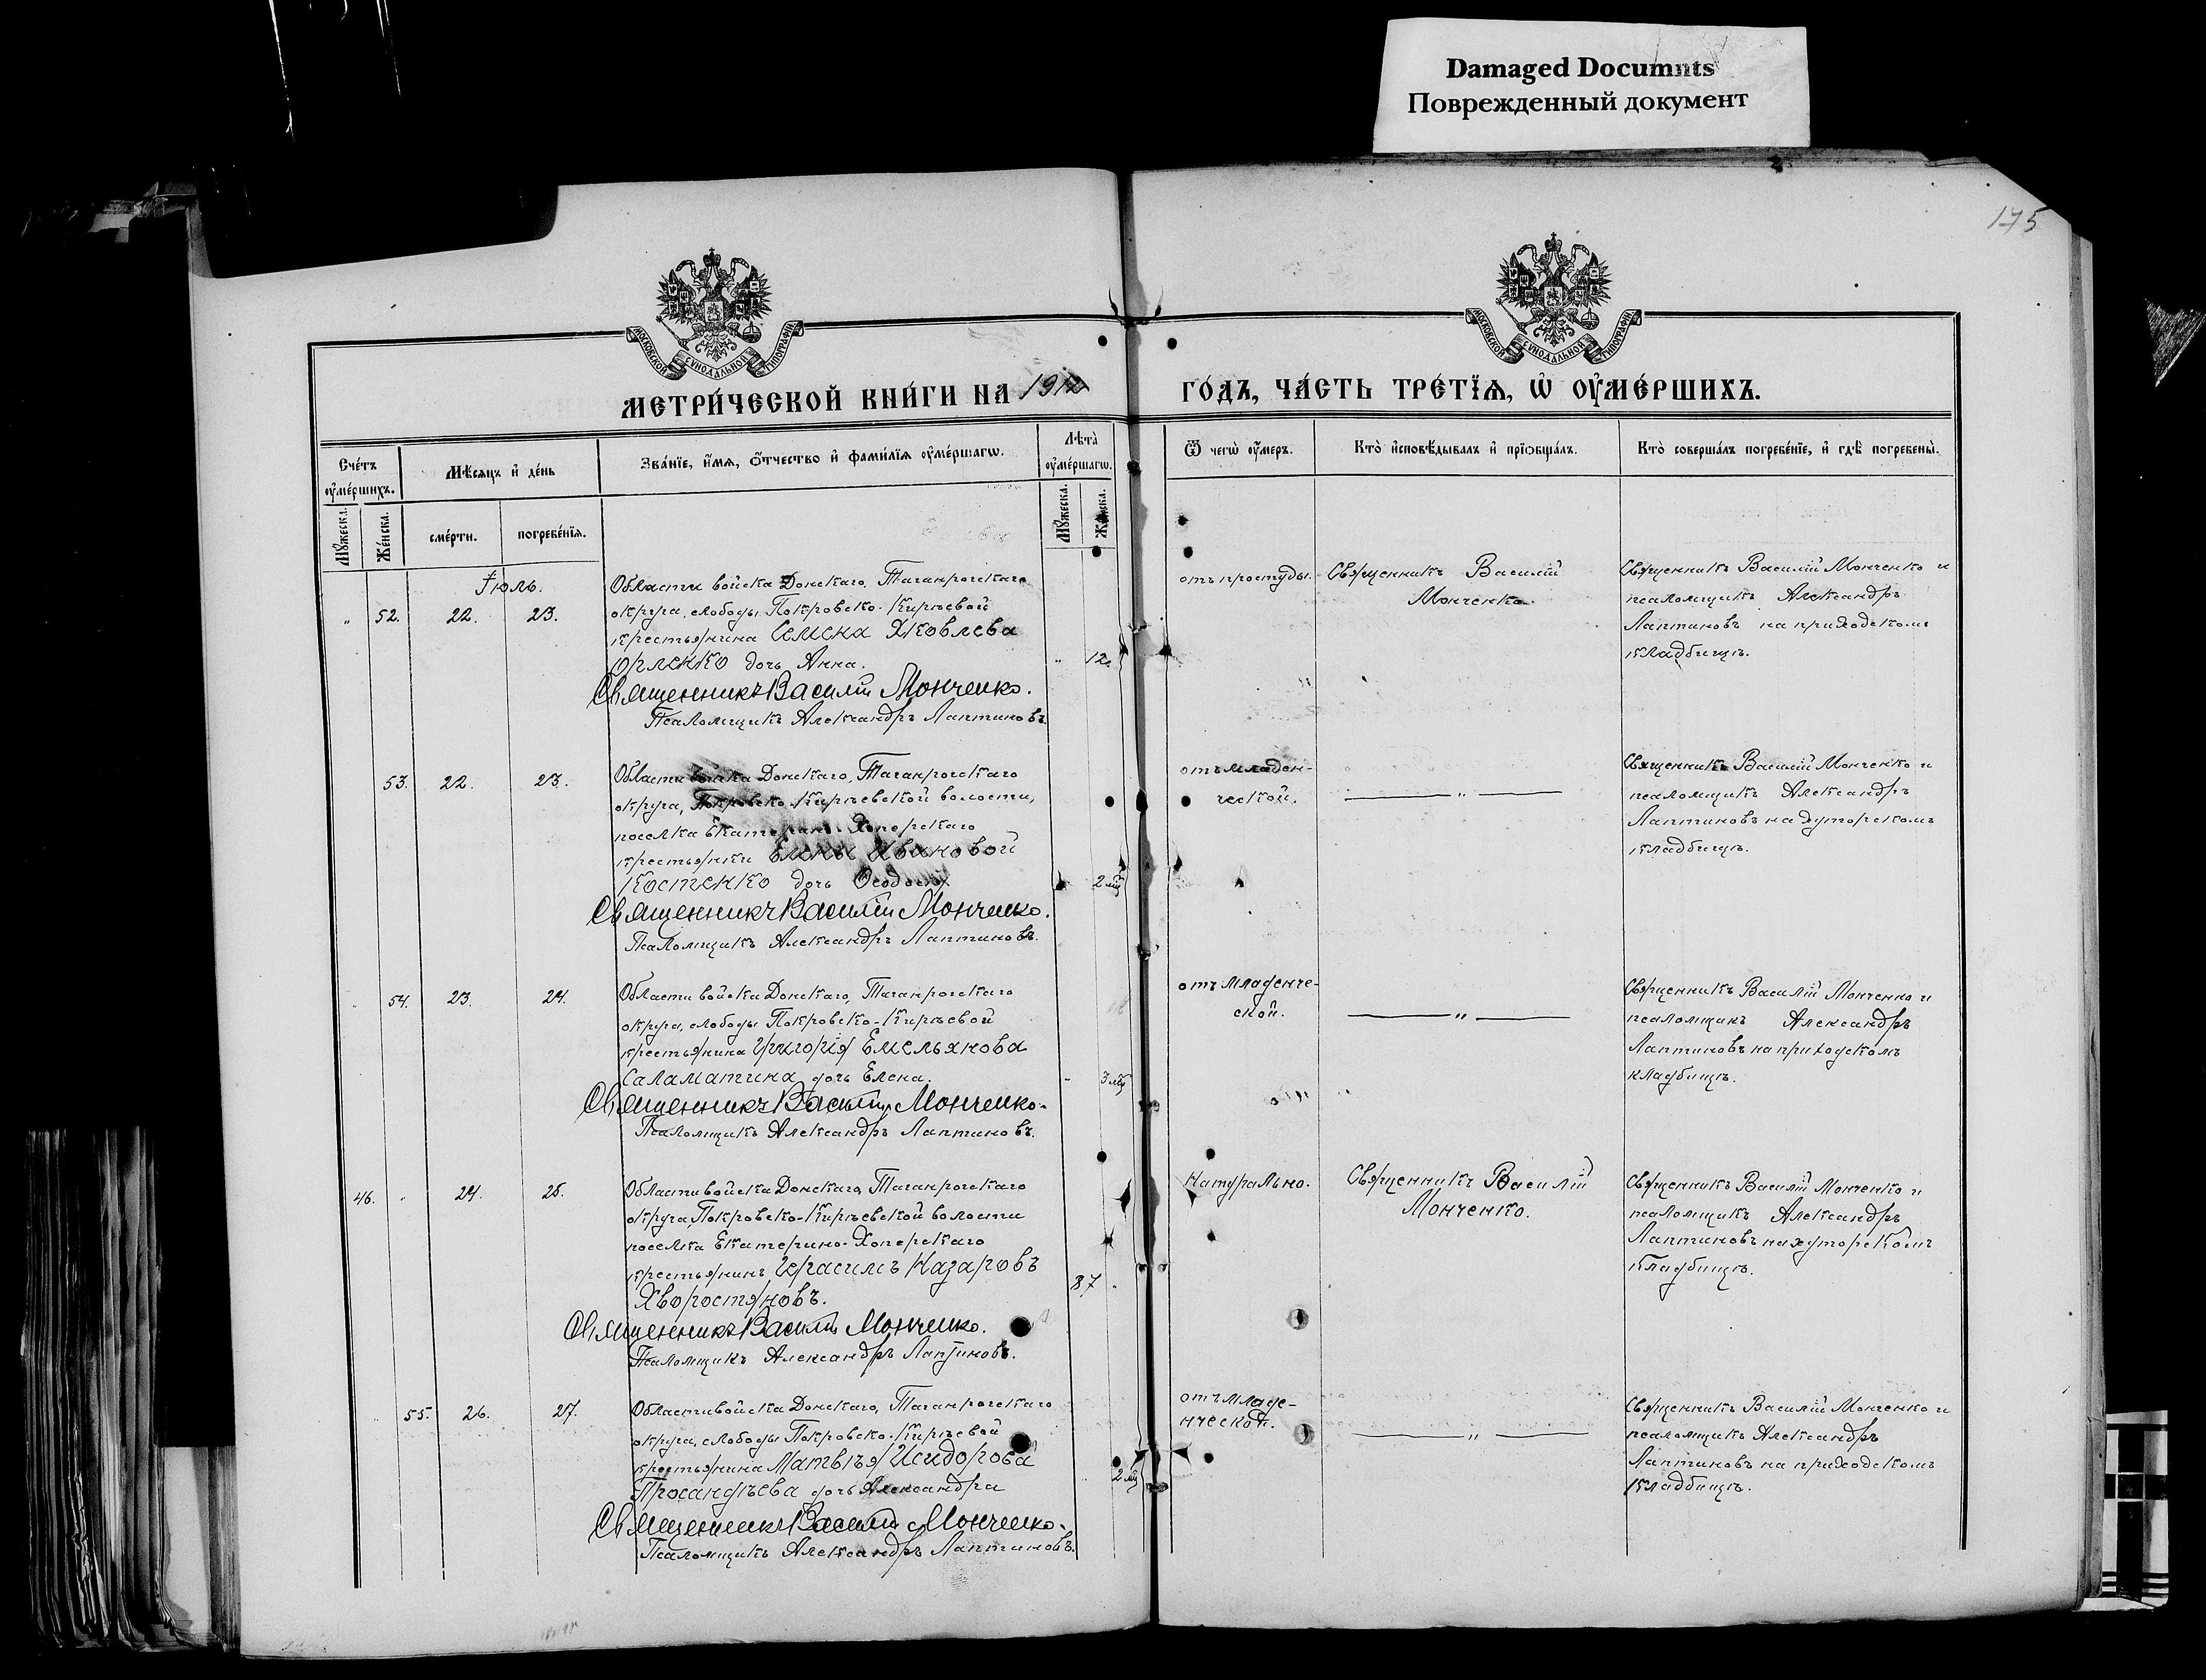 Damaged Documnts
Поврежденный документ
175
МОСКОВСКОЙ СѴНОДАЛЬНОЙ ТИПОГРАФІИ
МОСКОВСКОЙ СѴНОДАЛЬНОЙ ТИПОГРАФІИ
МЕТРИ́ЧЕСКОЙ КНИ́ГИ НА 1912
ГО́ДЪ, ЧА́СТЬ ТРЕ́ТЇѦ, Ѡ҆ ОУ҆МЕ́РШИХЪ.
Сче́тъ оу҆ме́ршихъ.
Мꙋ́жеска.
Же́нска.
Мѣ́сѧцъ и҆ де́нь
сме́рти.
погребе́нїѧ.
Зва́нїе, и҆́мѧ, ѻ҆́тчество и҆ фами́лїѧ оу҆ме́ршагѡ.
Лѣта̀ оу҆ме́ршагѡ.
Мꙋ́жеска.
Же́нска.
Ѿ чегѡ̀ оу҆́меръ.
Кто̀ и҆сповѣ́дывалъ и҆ прїѡбща́лъ.
Кто̀ соверша́лъ погребе́нїе, и҆ гдѣ̀ погребены̀.
Іюль.
" 52. 22. 23.
Области войска Донскаго, Таганрогскаго
округа, слободы Покровско-Кирѣевой
крестьянина Семена Яковлева
Орленко дочь Анна.
" 12.
Священникъ Василій Монченко.
Псаломщикъ Александръ Лаптиновъ.
отъ простуды.
Священникъ Василій
Монченко.
Священникъ Василій Монченко и
псаломщикъ Александръ
Лаптиновъ на приходскомъ
кладбищѣ.
53. 22. 23.
Области войска Донскаго, Таганрогскаго
округа, Покровско-Кирѣевской волости,
поселка Екатерино-Хоперскаго
крестьянки Елены Ивановой
Костенко дочь Ѳеодосія
2 мц
Священникъ Василій Монченко.
Псаломщикъ Александръ Лаптиновъ.
отъ младен-
ческой.
"
Священникъ Василій Монченко и
псаломщикъ Александръ
Лаптиновъ на хуторскомъ
кладбищѣ.
" 54. 23. 24.
Области войска Донскаго, Таганрогскаго
округа, слободы Покровско-Кирѣевой
крестьянина Григорія Емельянова
Саламатина дочь Елена.
" 3 мц
Священникъ Василій Монченко.
Псаломщикъ Александръ Лаптиновъ.
отъ младенче-
ской.
"
Священникъ Василій Монченко и
псаломщикъ Александръ
Лаптиновъ на приходскомъ
кладбищѣ.
46. " 24. 25.
Области войска Донскаго, Таганрогскаго
округа, Покровско-Кирѣевской волости
поселка Екатерино-Хоперскаго
крестьянинъ Герасимъ Назаровъ
Хворостяновъ.
87 "
Священникъ Василій Монченко.
Псаломщикъ Александръ Лаптиновъ.
Натурально.
Священникъ Василій
Монченко.
Священникъ Василій Монченко и
псаломщикъ Александръ
Лаптиновъ на хуторскомъ
кладбищѣ.
" 55. 26. 27.
Области войска Донскаго, Таганрогскаго
округа, слободы Покровско-Кирѣевой
крестьянина Матвѣя Исидорова
дочь Александра
2 мц
Священникъ Василій Монченко.
Псаломщикъ Александръ Лаптиновъ.
отъ младе-
нческой.
"
Священникъ Василій Монченко и
псаломщикъ Александръ
Лаптиновъ на приходскомъ
кладбищѣ.